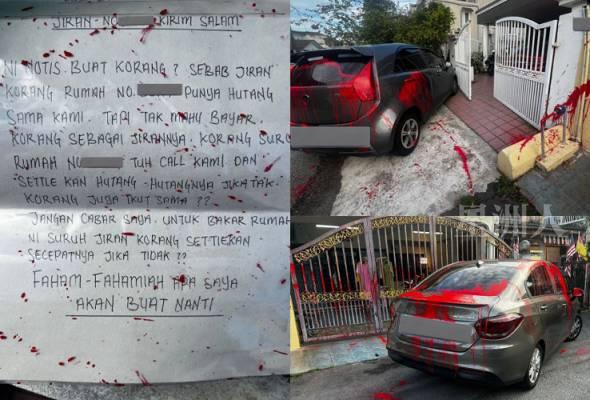 JIRAN-NO KIRIM SALAM
NI NOTIS BUAT KORANG? SEBAB JIRAN
KORANG RUMAH NO. PUNYA HUTANG
SAMA KAMI. TAPI TAK MAHU BAYAR.
KORANG SEBAGAI JIRANNYA. KORANG SURU
RUMAH NO TUH CALL KAMI DAN
SETTLE KAN HUTANG-HUTANGNYA JIKA TAK.
KORANG JUGA IKUT SAMA??
JANGAN CABAR SAYA. UNTUK BAKAR RUMAH
NI SURUH JIRAN KORANG SETTLEKAN
SECEPATNYA JIKA TIDAK??
FAHAM-FAHAMLAH APA SAYA
AKAN BUAT NANTI